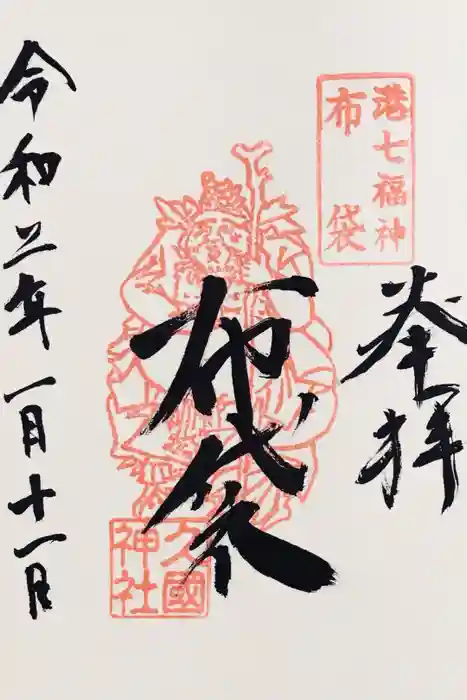 奉拝
港七福神
布袋
布袋
久國
神社
令和二年一月十一日